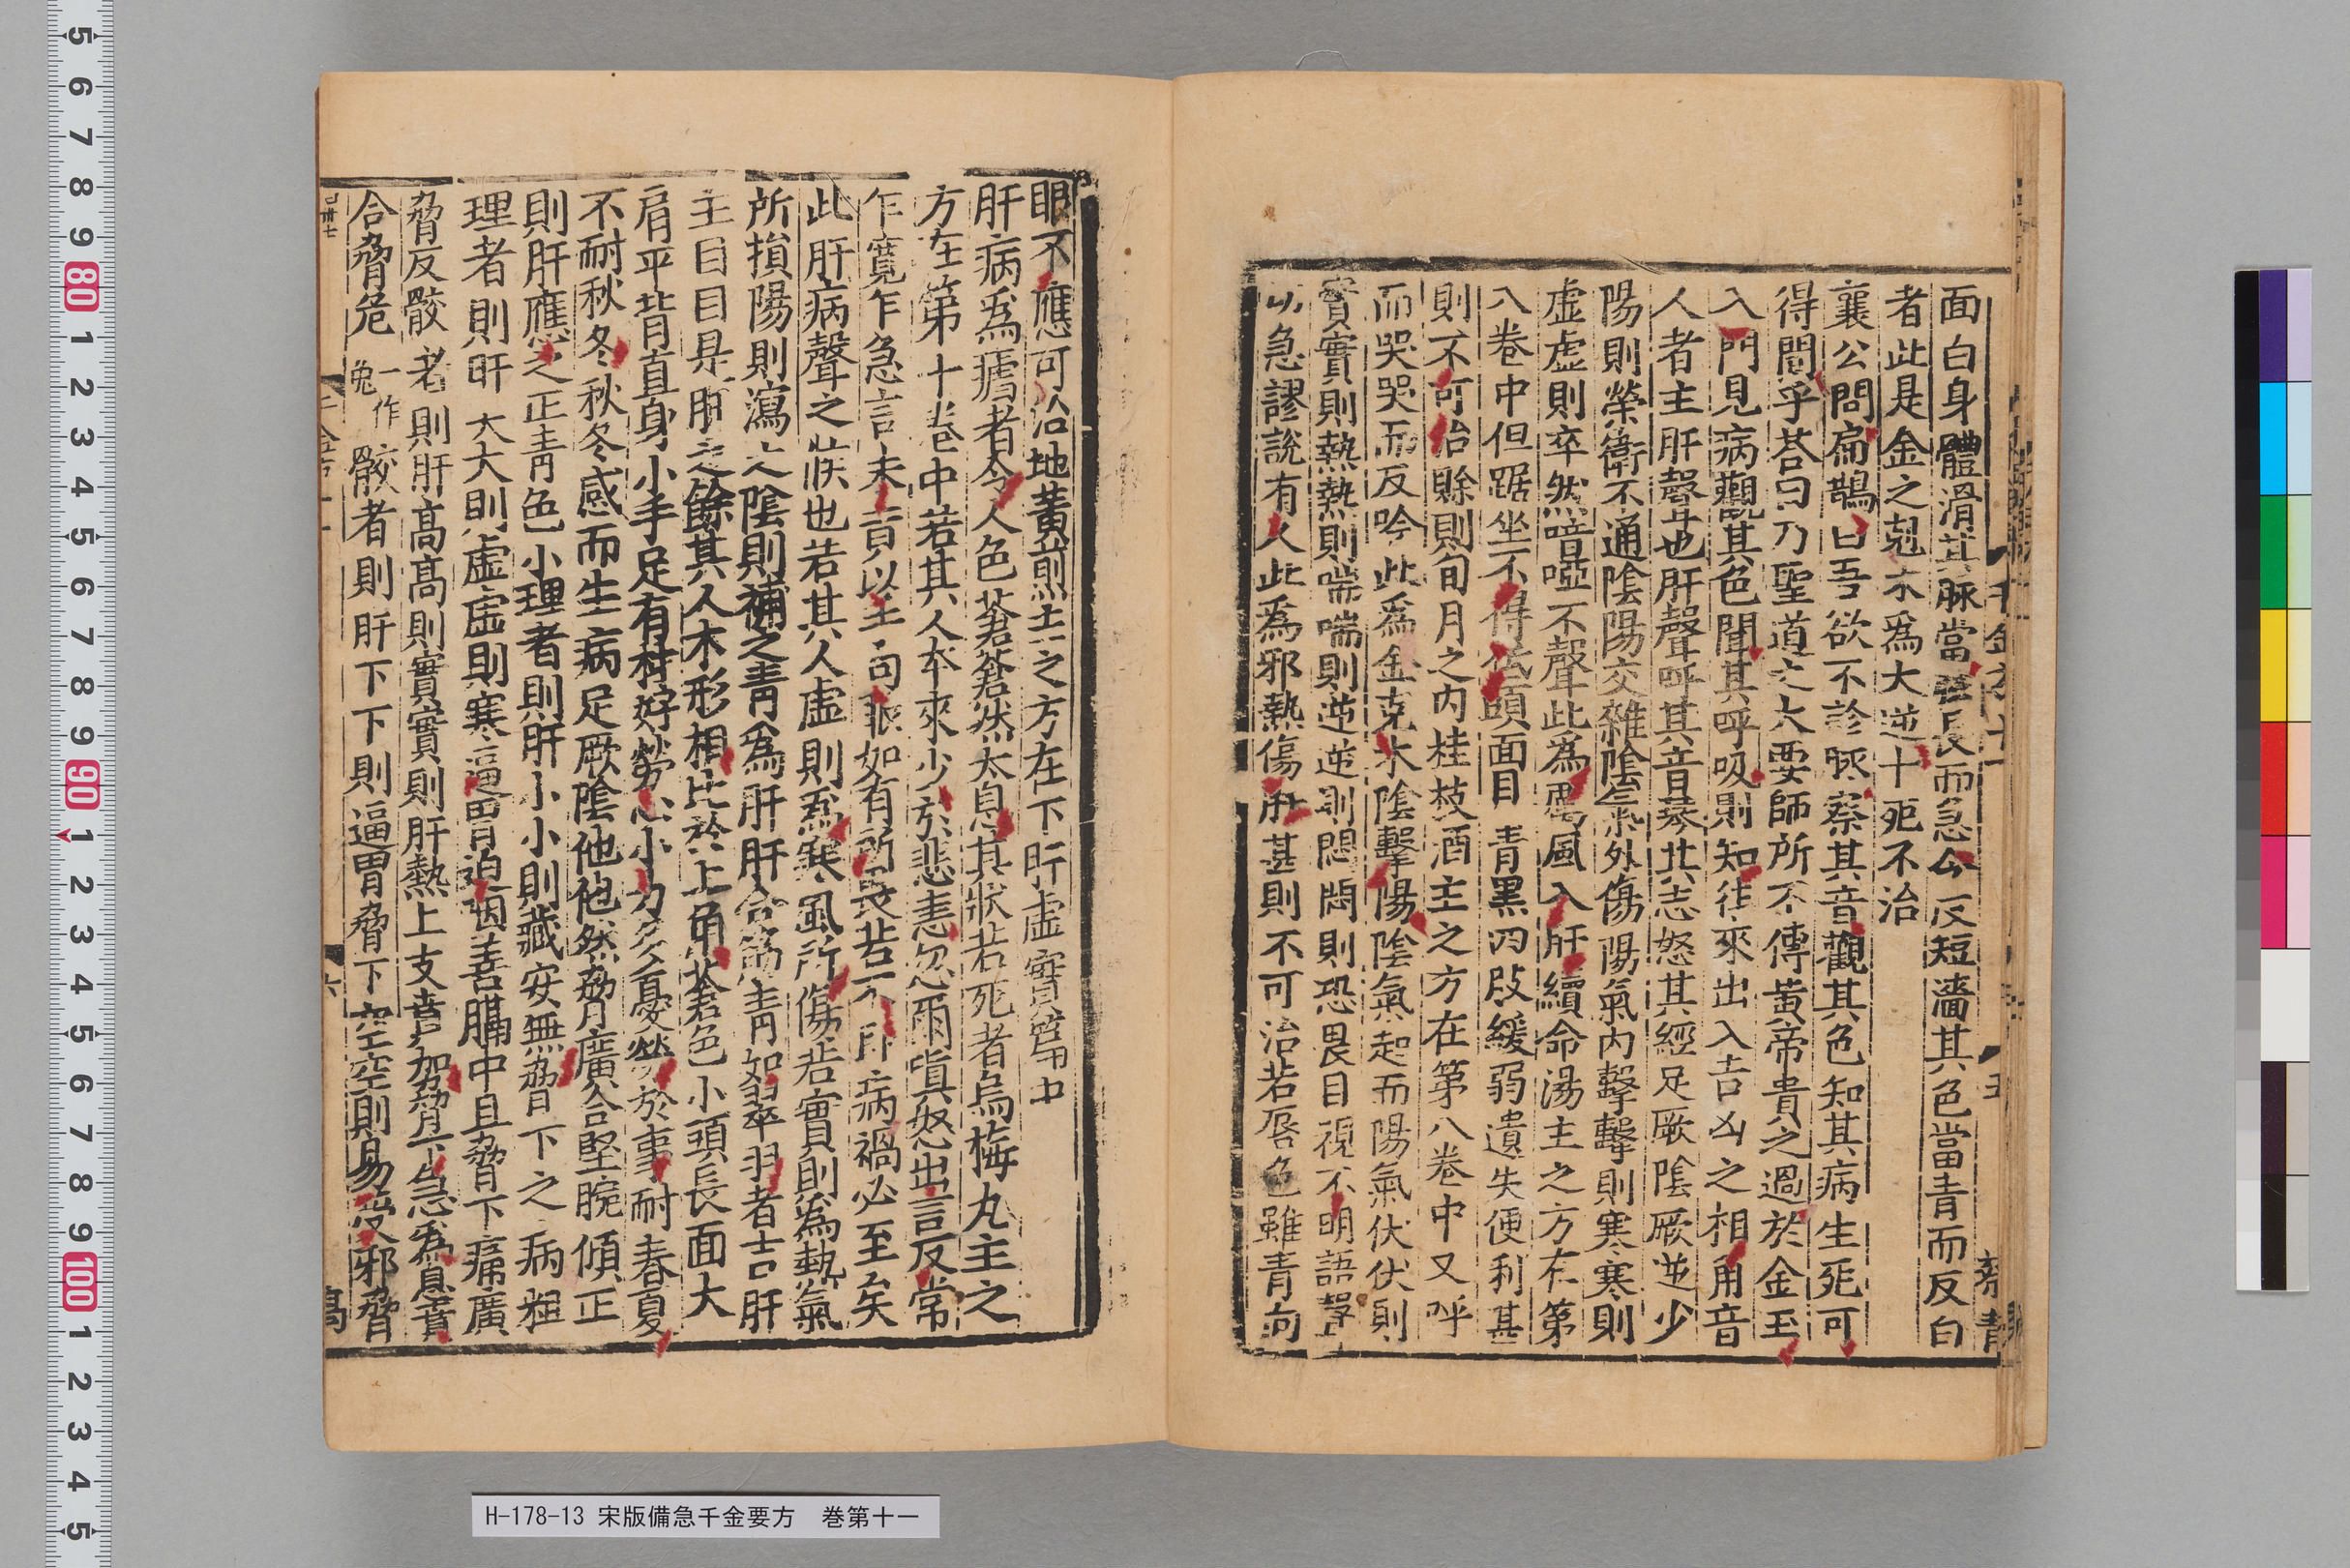 面白身體滑其脉當弦長而急今反短濇其色當青而反白
者此是金之剋木爲大逆十死不治
襄公問扁鵲曰吾欲不診脉察其音觀其色知其病生死可
得聞乎荅曰乃聖道之大要師所不傳黄帝貴之過於金玉
入門見病觀其色聞其呼吸則知往來出入吉凶之相角音
人者主肝聲也肝聲呼其音琴其志怒其經足厥陰厥逆少
陽則榮衛不通陰陽交雜陰氣外傷陽氣内擊擊則寒寒則
虚虚則卒然喑啞不聲此爲厲風入肝續命湯主之方在第
八卷中但踞坐不得低頭面目青黒四肢緩弱遺失便利甚
則不可治賖則旬月之内桂枝酒主之方在第八卷中又呼
而哭哭而反吟此爲金克木陰擊陽陰氣起而陽氣伏伏則
實實則熱熱則喘喘則逆逆則悶悶則恐畏目視不明語聲
切急謬說有人此爲邪熱傷肝甚則不可治若唇色雖青向
眼不應可治地黄煎主之方在下肝虚實篇中
肝病爲瘧者令人色蒼蒼然太息其狀若死者烏梅丸主之
方在第十卷中若其人本來少於悲恚忽爾嗔怒出言反常
乍寛乍急言未竟以手向眼如有所畏若不即病禍必至矣
此肝病聲之候也若其人虚則爲寒風所傷若實則爲熱氣
所損陽則瀉之陰則補之青爲肝肝合筋青如翠羽者吉肝
主目目是肝之餘其人木形相比於上角蒼色小頭長面大
肩平背直身小手足有材好勞心小力多憂勞於事耐春夏
不耐秋冬秋冬感而生病足厥陰他他然脅廣合堅脆傾正
則肝應之正青色小理者則肝小小則藏安無脅下之病粗
理者則肝大大則虚虚則寒逼胃迫咽善膈中且脅下痛廣
脅反骹者則肝高高則實實則肝熱上支賁加脅下急爲息賁
合脅危一作兔骹者則肝下下則逼胃脅下空空則易受邪脅
H-178-13 宋版備急千金要方　巻第十一